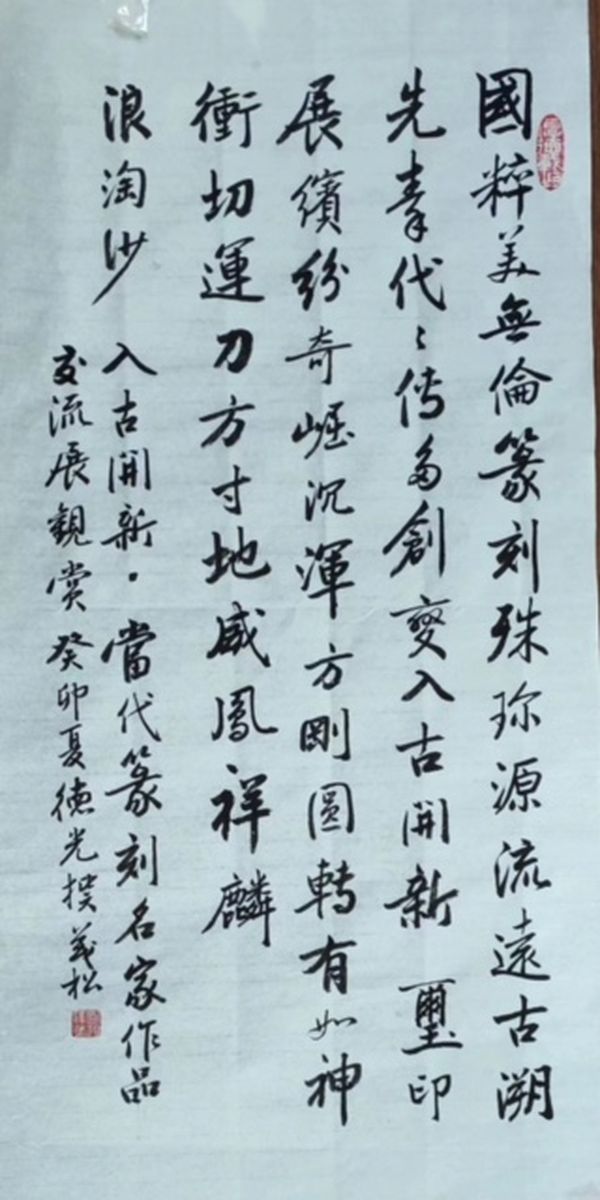 國粹美無倫篆刻殊珎源流遠古溯
先秦代〻傳多創變入古開新 璽印
展繽紛奇崛沉渾方剛圓轉有如神
衝切運刀方寸地威鳳祥麟
浪淘沙 入古開新·當代篆刻名家作品
交流展觀賞 癸卯夏德光撰義松